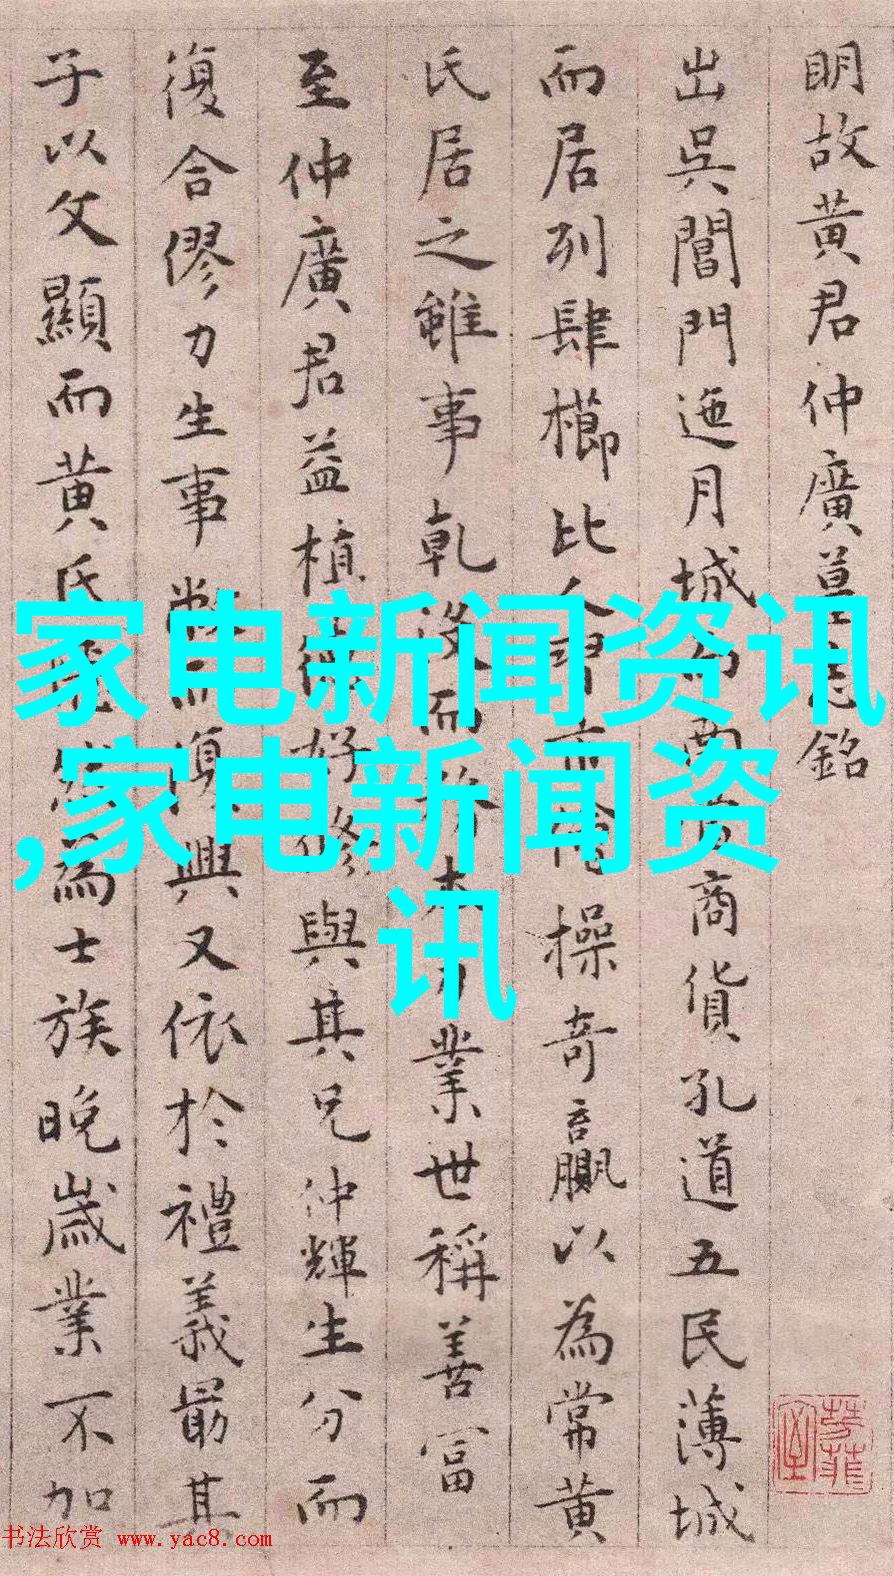 明故黃君仲廣墓志銘
出吳閶門迤月城而西百商貨孔道五民薄城
而居列肆櫛比人習市儈操奇贏以為常黃
氏居之雖事乾沒而務本力業世稱善富
至仲廣君益植德好修與其兄仲輝生分而
復合僇力生事業興又依於禮義最其
子以文顯而黃氏為士族晚歲業不加
家电新闻资讯
,家电新闻资
讯
书法欣赏 www.yac8.com